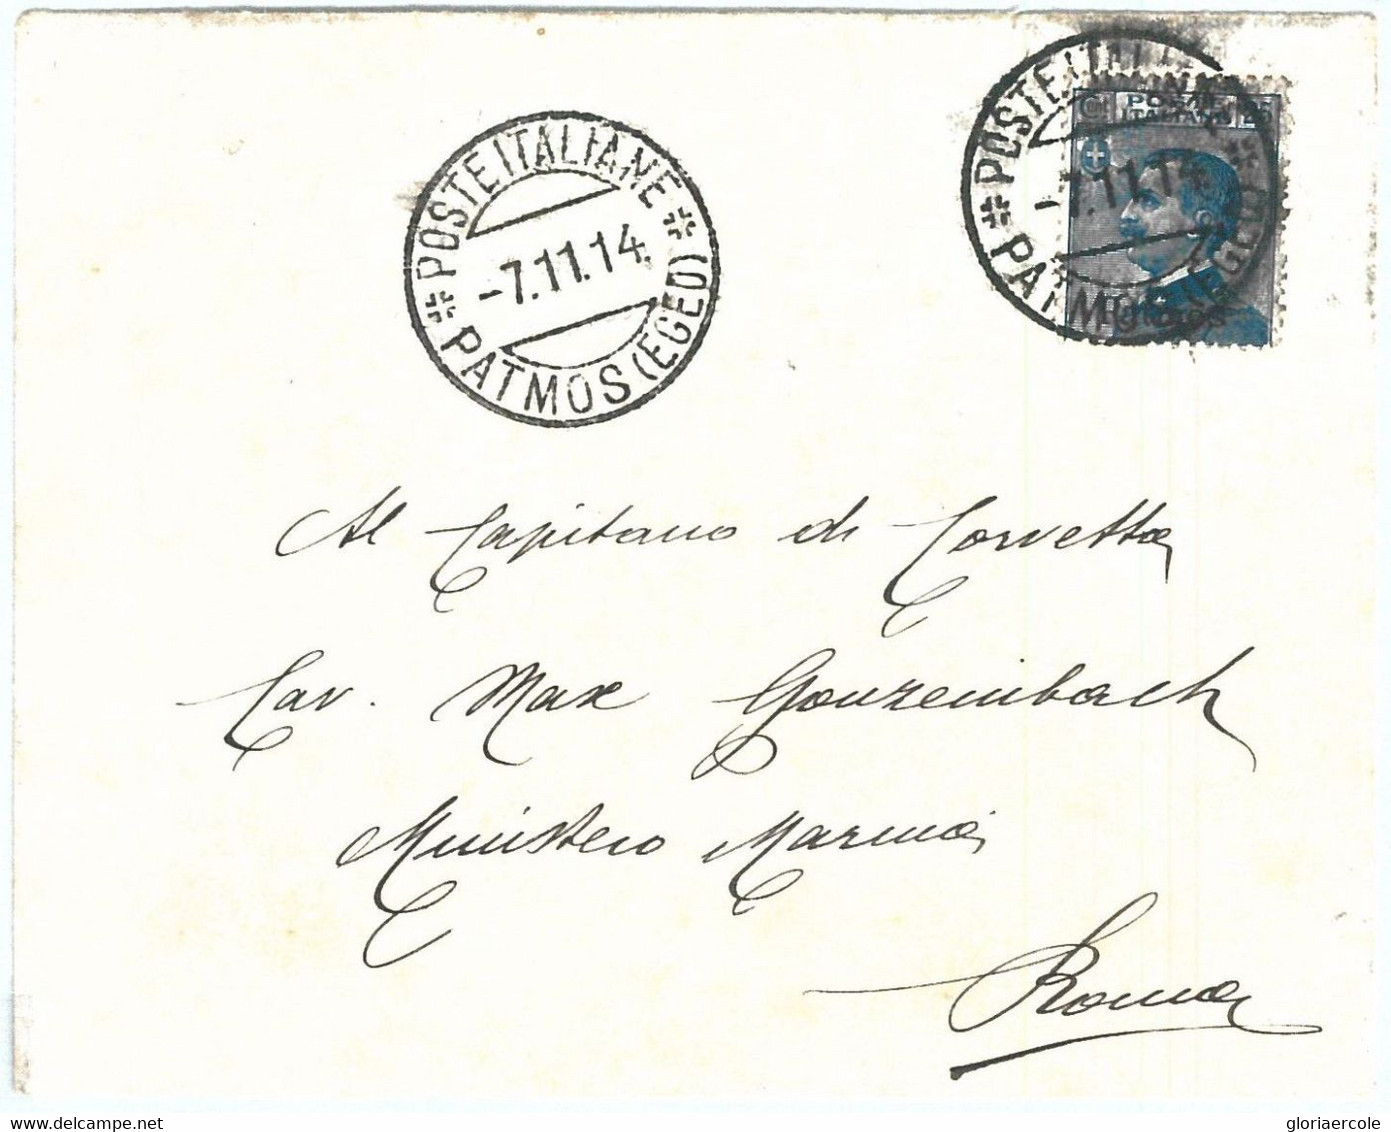 POSTE ITALIANE
-7.11.14.
PATMOS (EGEO)
POSTE ITALIANE
-7.11.14
PATMOS (EGEO)
POSTE
ITALIANE 25
Al Capitano di Corvetta
Cav. Max Gonzenbach
Ministero Marina
Roma
gloriaercole